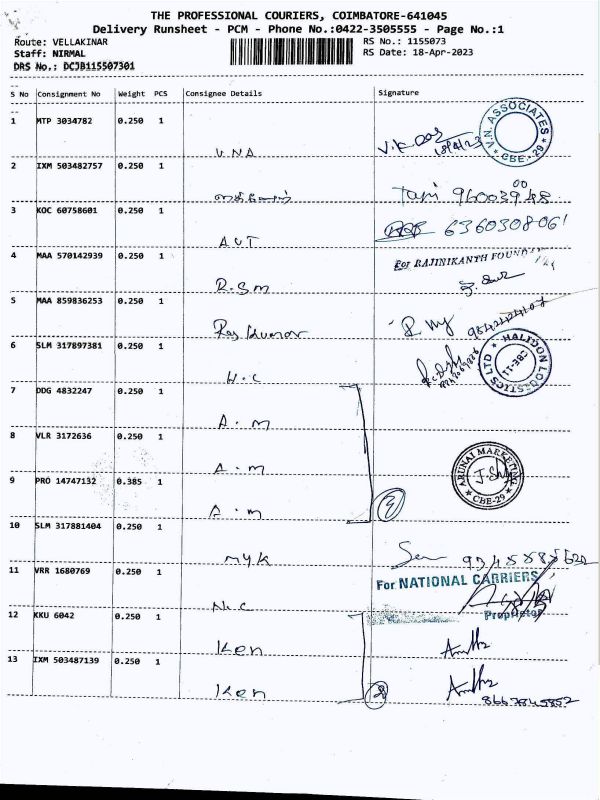 THE PROFESSIONAL COURIERS, COIMBATORE-641045
Delivery Runsheet - PCM - Phone No.:0422-3505555 - Page No.:1
Route: VELLAKINAR RS No.: 1155073
Staff: NIRMAL RS Date: 18-Apr-2023
DRS No.: DCJB115507301
S No Consignment No Weight PCS Consignee Details Signature
1 MTP 3034782 0.250 1
V.N.A 18/4/23
V.N. ASSOCIATES CBE-29
2 IXM 503482757 0.250 1
3 KOC 60758601 0.250 1
AUT 6360308061
4 MAA 570142939 0.250 1
For RAJINIKANTH
R.S.M
5 MAA 859836253 0.250 1
Raj Kumar
6 SLM 317897381 0.250 1
HALIDON LOGISTICS LTD CBE-11
H.C
7 DDG 4832247 0.250 1
A.M
8 VLR 3172636 0.250 1
A.M
ARUNAI MARKETING CBE-29
9 PRO 14747132 0.385 1
A.M
10 SLM 317881404 0.250 1
MYK
11 VRR 1680769 0.250 1
For NATIONAL CARRIERS
N.C
Proprietor
12 KKU 6042 0.250 1
Ken
13 IXM 503487139 0.250 1
Ken